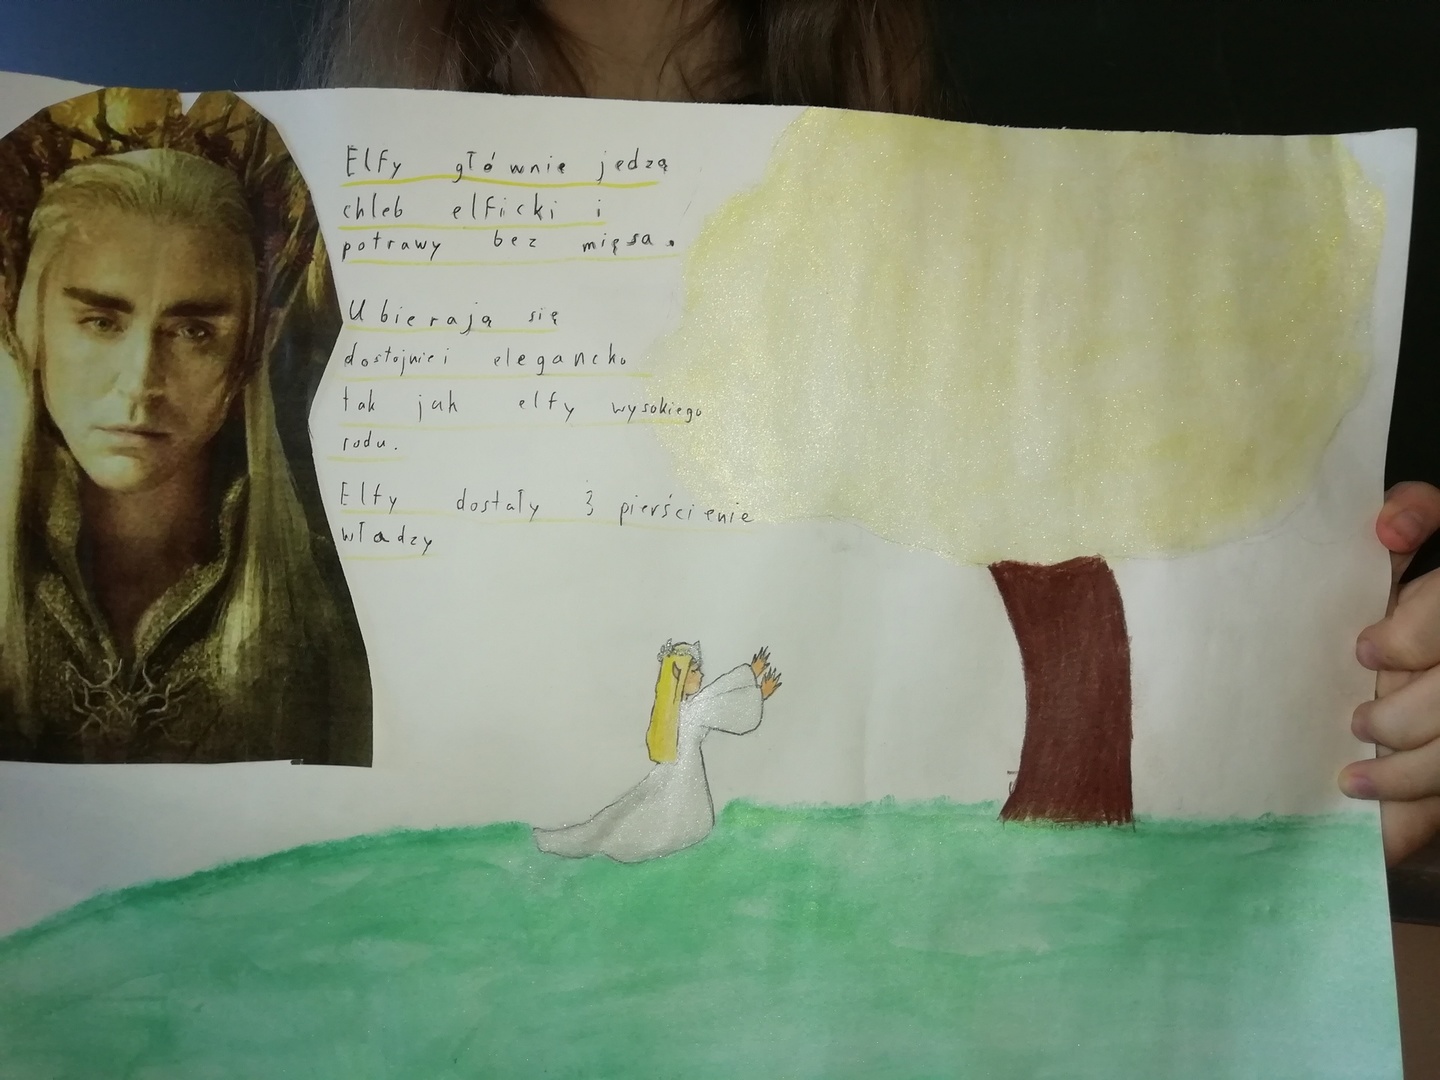 Elfy głównie jedzą
chleb elficki i
potrawy bez mięsa.
Ubierają się
dostojnie i elegancko
tak jak elfy wysokiego
rodu.
Elfy dostały 3 pierścienie
władzy